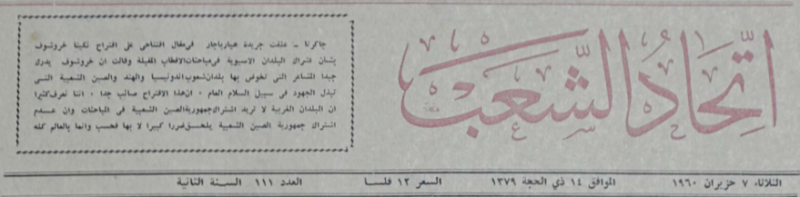 اتحاد الشعب
جاكرتا ـ علقت جريدة هيارباجار في مقال افتتاحي على اقتراح نكيتا خروشوف
بشأن اشراك البلدان الاسيوية في مباحثات الاقطاب المقبلة وقالت ان خروشوف يدرك
جيدا المشاعر التي تخوض بها بلدان شعوب اندونيسيا والهند والصين الشعبية التي
تبذل الجهود في سبيل السلام العام ٠ ان هذا الاقتراح صائب جدا ٠ اننا نعرف كثيرا
ان البلدان الغربية لا تريد اشتراك جمهورية الصين الشعبية في المباحثات وان عدم
اشتراك جمهورية الصين الشعبية يلحق ضررا كبيرا لا بها فحسب وانما بالعالم كله
الثلاثاء ٧ حزيران ١٩٦٠ الموافق ١٤ ذي الحجة ١٣٧٩ السعر ١٢ فلسا العدد ١١١ السنة الثانية